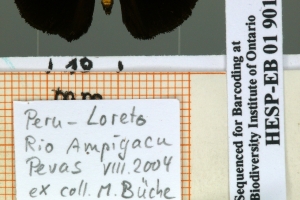 10
mm
Peru - Loreto
Rio Ampigacu
Pevas VIII.2004
ex coll. M. Büche
Sequenced for Barcoding at
Biodiversity Institute of Ontario
HESP-EB 01 901